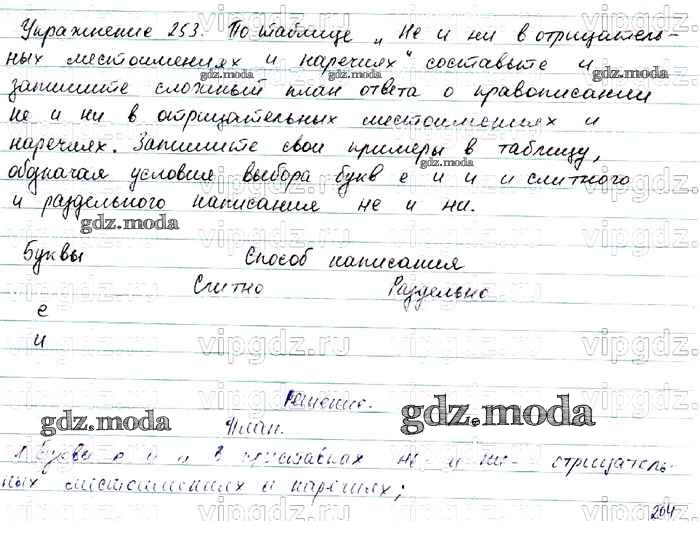 Упражнение 253. По таблице „Не и ни в отрицатель-
ных местоимениях и наречиях" составьте и
запишите сложный план ответа о правописании
не и ни в отрицательных местоимениях и
наречиях. Запишите свои примеры в таблицу,
обозначая условия выбора букв е и и и слитного
и раздельного написания не и ни.
Буквы Способ написания
Слитно Раздельно
е
и
Решение.
План.
1. Буквы е и и в приставках не- и ни- отрицатель-
ных местоимениях и наречиях;
204
gdz.moda
gdz.moda
gdz.moda
gdz.moda
gdz.moda
gdz.moda
gdz.moda
vipgdz.ru